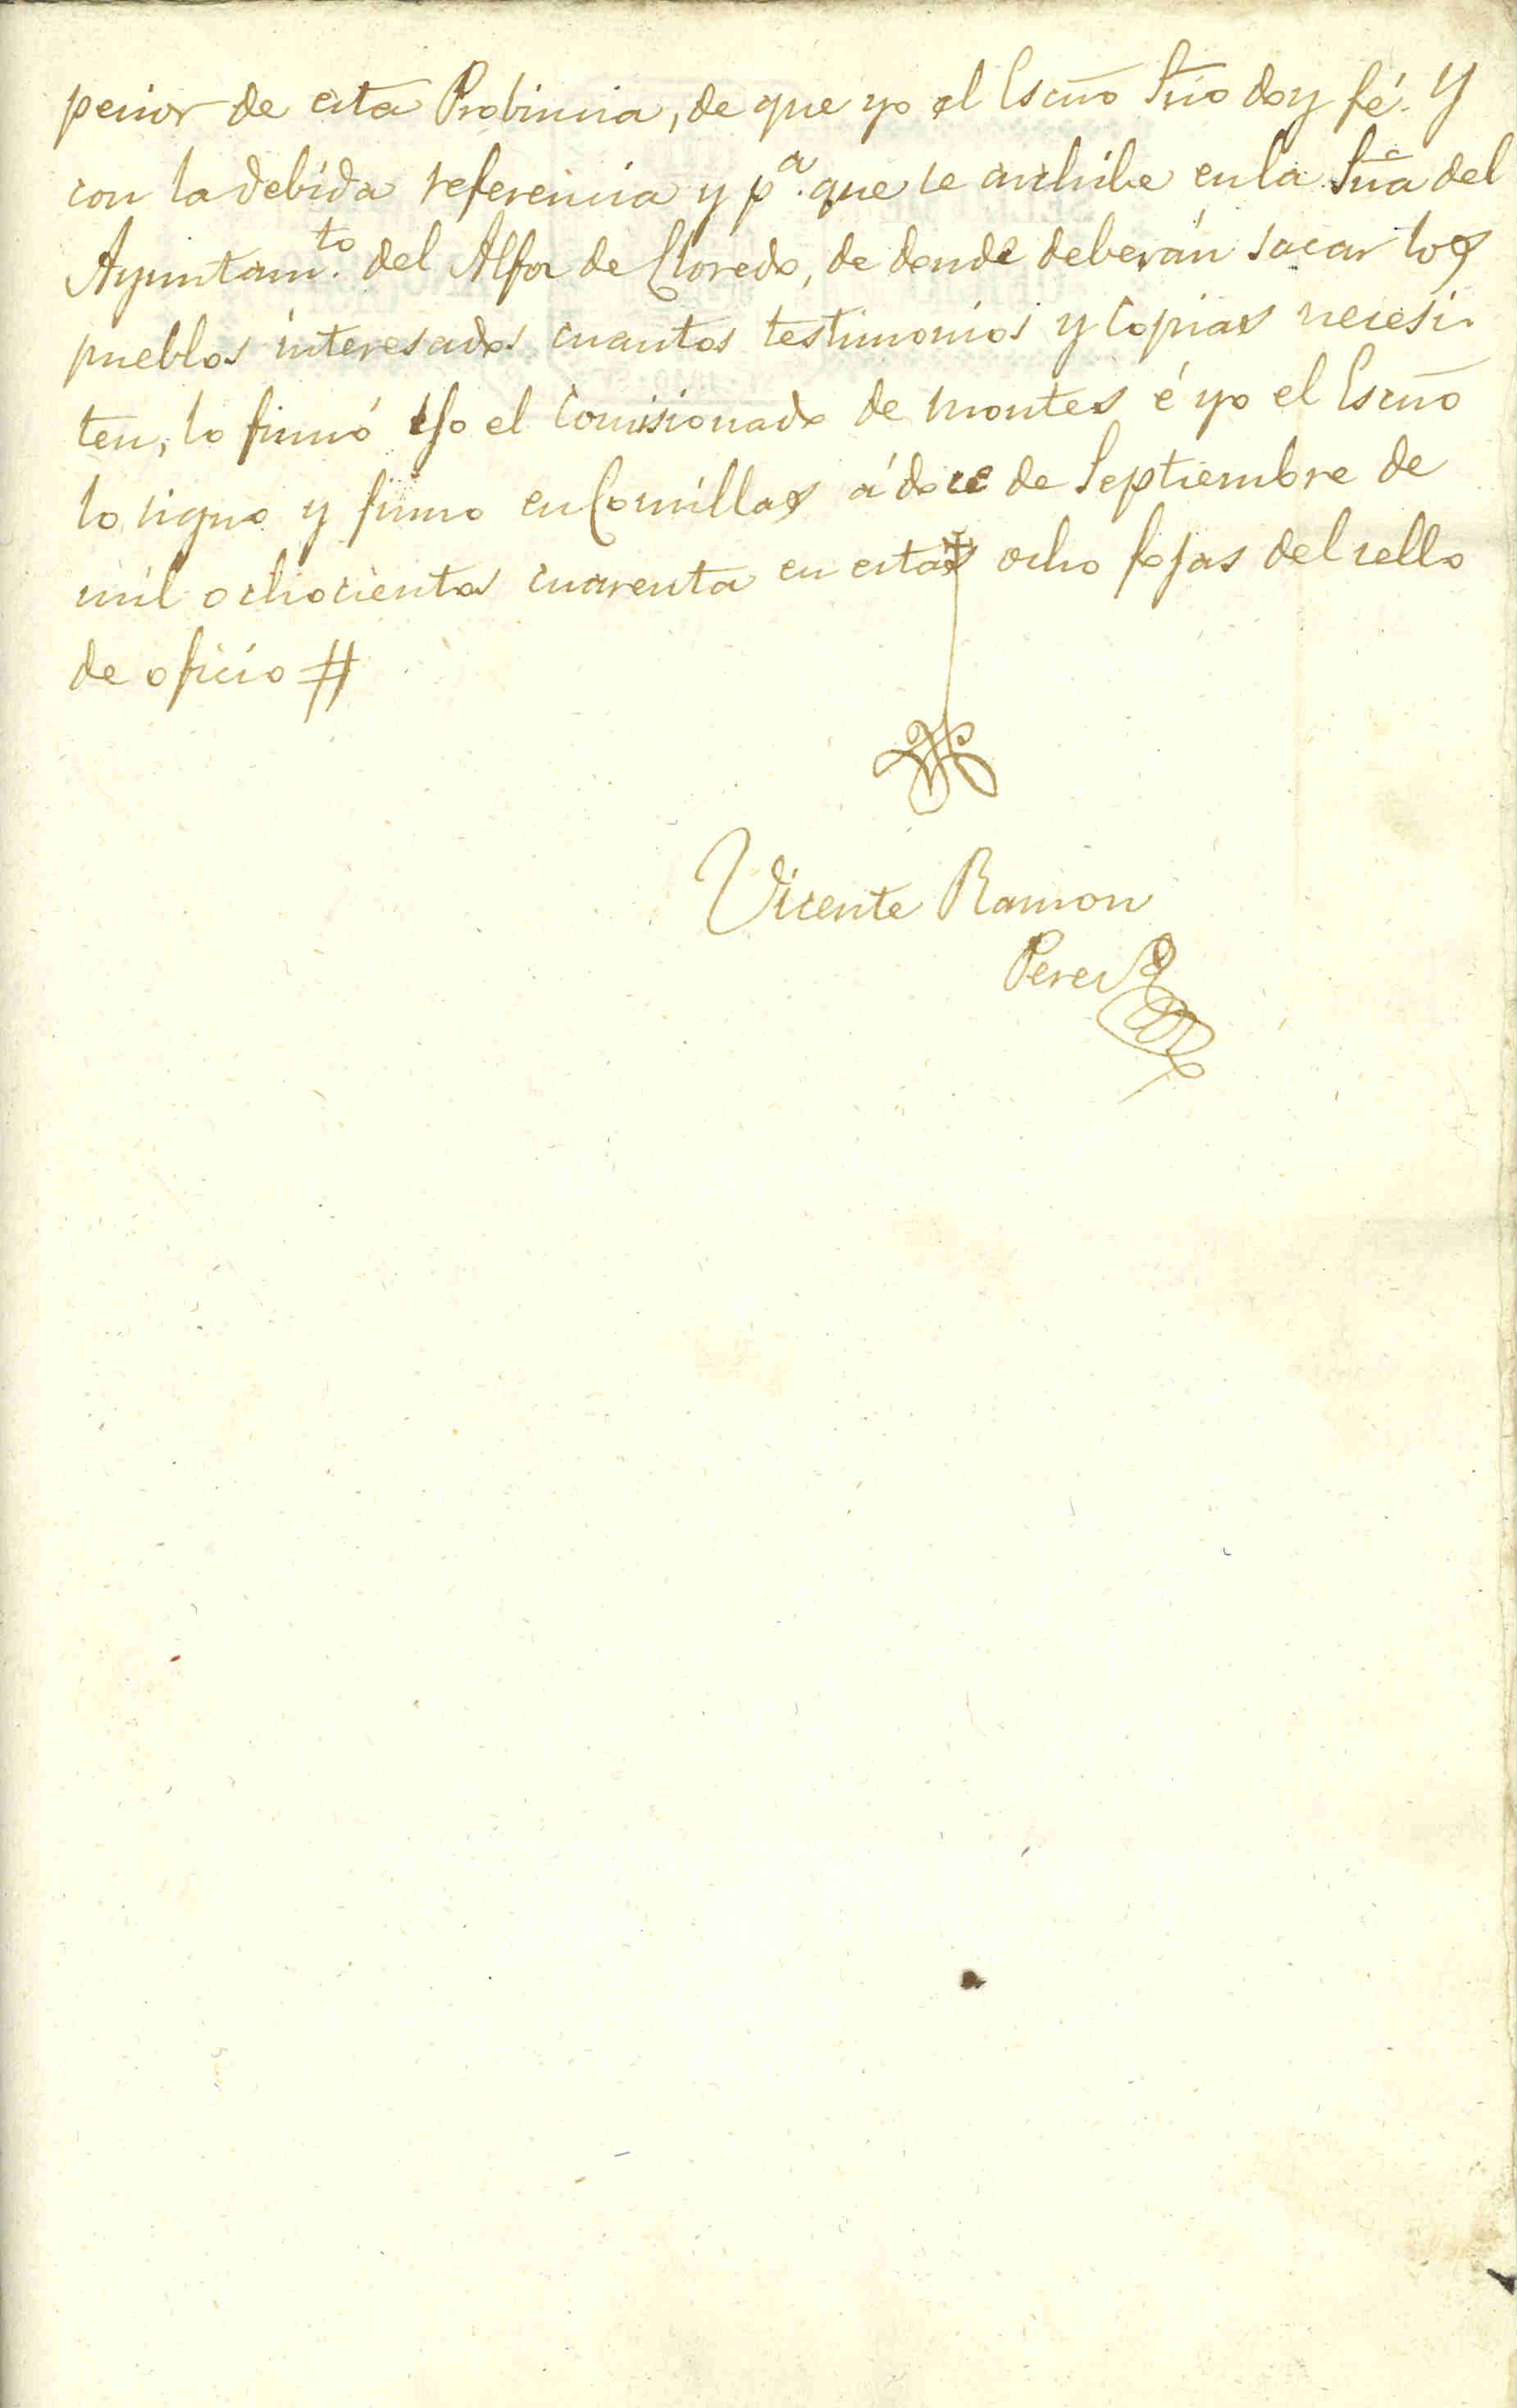 perior de esta Probincia, de que yo el Escno Srio doy fé. Y
con la debida referencia y pa. que se archibe en la Sria del
Ayuntamto. del Alfoz de Lloredo, de donde deberán sacar los
pueblos interesados cuantos testimonios y copias necesi-
ten, lo firmó dho el Comisionado de montes é yo el Escno
lo signo y firmo en Comillas á doce de Septiembre de
mil ochocientos cuarenta en estas ocho fojas del sello
de oficio #
Vicente Ramon
Perez